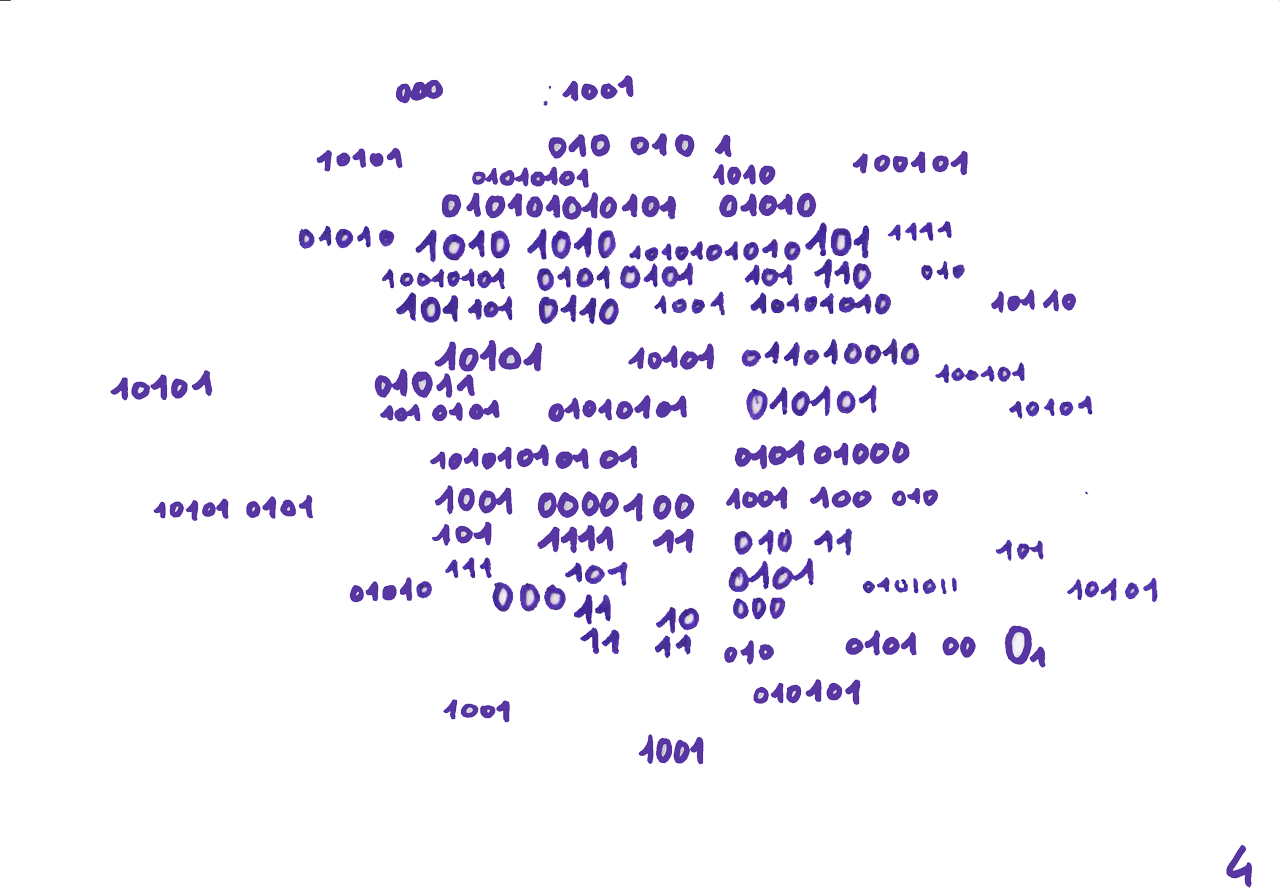 000 : 1001
010 010 1
10101 100101
01010101 1010
010101010101 01010
01010 1010 1010 1010101010 101 1111
10010101 0101 0101 101 110 010
101 101 0110 1001 10101010 10110
10101 10101 011010010
10101 01011 100101
101 0101 01010101 010101 10101
1010101 01 01 0101 01000
10101 0101 1001 0000100 1001 100 010
101 1111 11 010 11 101
111 101 0101
01010 000 11 10 000 0101011 10101
11 11 010 0101 00 01
010101
1001
1001
4